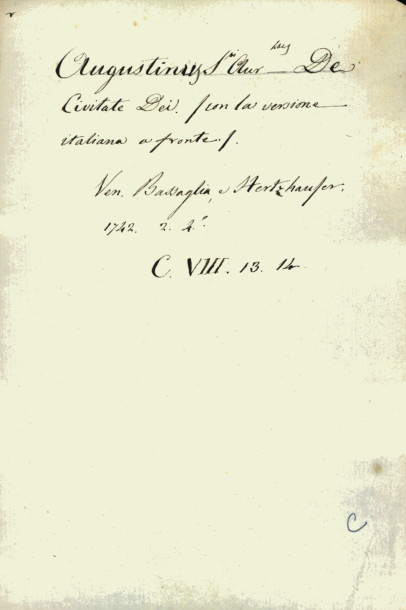 Augustinus S.us Aur—lius De
Civitate Dei. /con la versione
italiana a fronte/.
Ven. Bassaglia, e Hertzhauser.
1742. 2. 4.°
C. VIII. 13. 14.
C